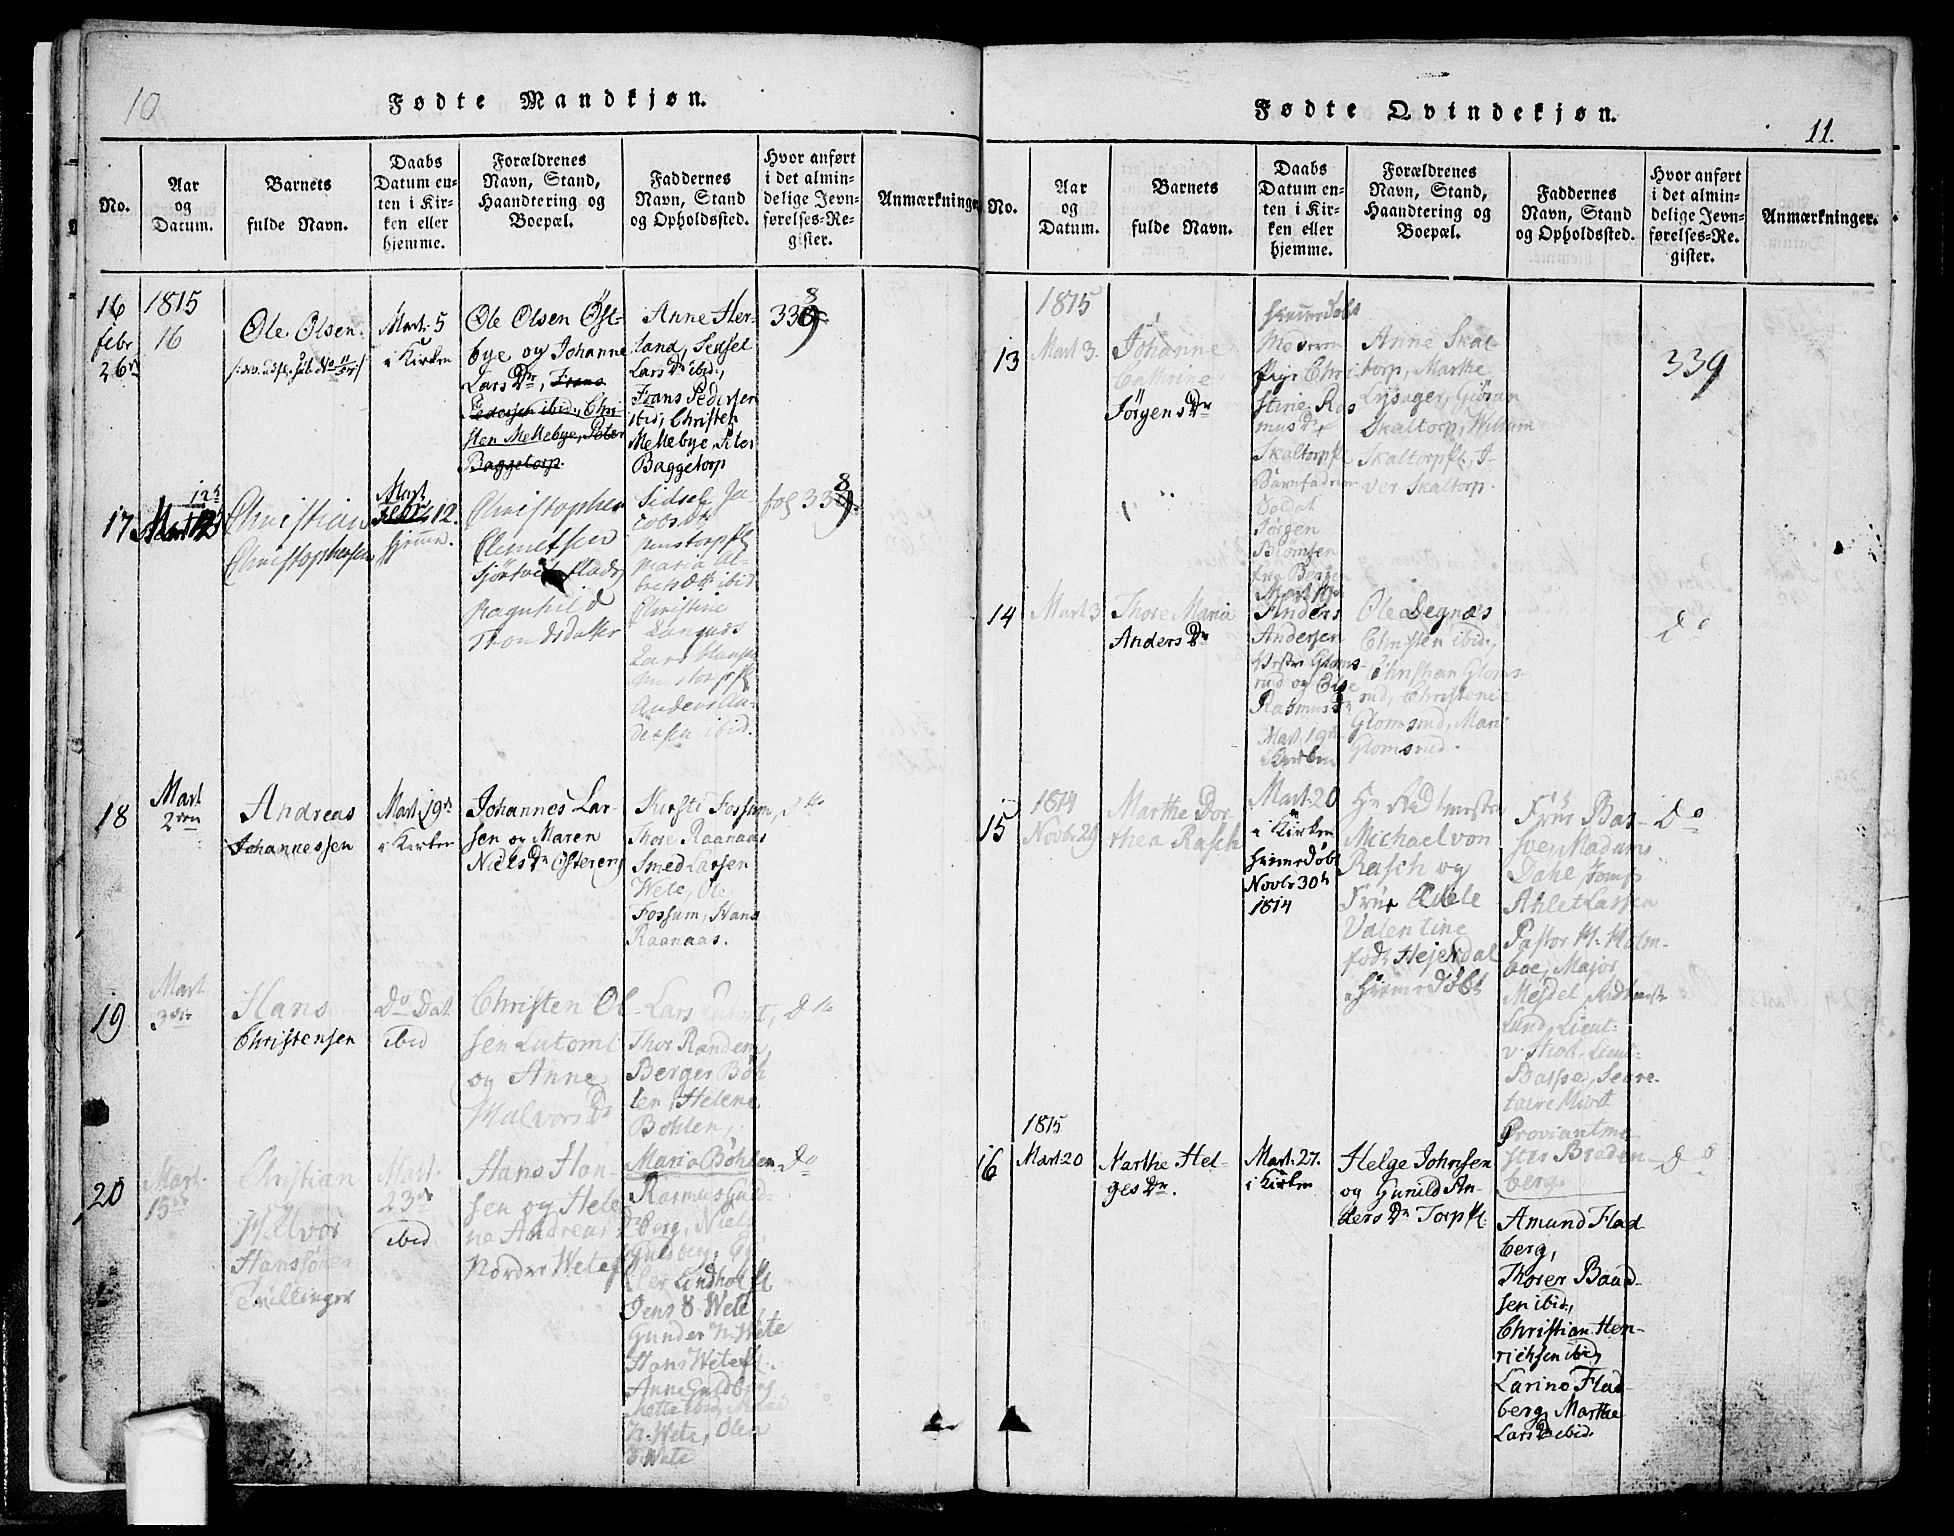 10
Fødte Mandkjøn.
No.
Aar
og
Datum.
Barnets
fulde Navn.
Daabs
Datum en-
ten i Kir-
ken eller
hjemme.
Forældrenes
Navn, Stand,
Haandtering og
Boepæl.
Faddernes
Navn, Stand
og Opholdssted.
Hvor anført
i det almin-
delige Jevn-
førelses-Re-
gister.
Anmærkninger
16
febr
26
1815
16
Ole Olsen
Mart. 5
i Kirken
Ole Olsen Öst-
bye og Johanne
Lars Dr, Frans
Pedersen ibid., Chri-
sten Mellebye, Peter
Baggetorp.
Anne Her-
land, Sidsel
Lars Dr ibid.,
Frans Pedersen
ibid, Christen
Mellebye, Peter
Baggetorp
338
17
Christian
Christophersen
Mart.
Febr. 12.
hjemme.
Christopher
Clemetsen
Ragnhild
Trondsdatter
Sidsel Ja-
cobs Dtr
Maria Al-
brets Dtr ibid
Christine
Langnæs
Lars Hansen
Anders An-
dersen ibid.
fol 338
18
Mart
2den
Andreas
Johannessen
Mart. 19de
i Kirken
Johannes Lar-
sen og Maren
Niels Dr Östereng
Kirsti Fossum,
Thore Raanaas
Smed Larsen
Wete, Ole
Fossum, Hans
Raanaas.
Dto
19
Mart
3die
Hans
Christensen
Do Dat.
ibid
Christen Ol-
sen Lutomt
og Anne
Halvors Dr
Lars Lutomt,
Thor Randem,
Berger Böh-
len, Helene
Böhlen,
Maria Böhlen
Dto
20
Mart.
15de
Christian
Halvor
Hanssöner
Tvillinger
Mart.
23de
ibid
Hans Han-
sen og Hele-
na Andreas Dr
Nordre Wete
Rasmus Guld-
berg, Niels
Guldberg,
Lindhol
Jens S. Wete
Gunder N. Wete
Hans Wete
Anne Guldberg
N. Wete, Olea
S. Wete
Do
Fødte Qvindekjøn.
11.
No.
Aar
og
Datum.
Barnets
fulde Navn.
Daabs
Datum en-
ten i Kir-
ken eller
hjemme.
Forældrenes
Navn, Stand,
Haandtering og
Boepæl.
Faddernes
Navn, Stand
og Opholdssted.
Hvor anført
i det almin-
delige Jevn-
førelses-Re-
gister.
Anmærkninger.
13
1815
Mart 3.
Johanne
Cathrine
Jörgens Dr
hjemmedöbt
Moderen
Pige Chri-
stine Ras
mus Dr
Skaltorp
Barnfaderen
Soldat
Jörgen
fra Bergen
Mart 19de
Anne Skal
torp, Marthe
Lysager, Gjöran
Skaltorp, William
Skaltorp, I-
ver Skaltorp.
339
14
Mart. 3
Thore Maria
Anders Dr
Anders
Andersen
Vestre Gloms-
rud og Else
Rasmus Dr
Mart. 19de
i Kirken
Ole Degnæs
Christen ibid.,
Christian Gloms-
rud, Christense
Glomsrud, Mari
Glomsrud.
Do
15
1814
Novbr 29
Marthe Dor-
thea Rasch
Mart. 20
i Kirken
hjemmedöbt
Novbr 30te
1814
Hr Ridtmester
Michael von
Rasch og
Frue Edele
Valentine
föd Hejerdal
hjemmedöbt
Frue Bas-
söe, Madam
Dahl, Jomf
Ahlet Lassen
Pastor H. Holm-
boe, Major
Mejdel, Ridtmester
Lund, Lieut-
Basse, Secre-
taire
Proviantme-
ster Breden-
berg.
Do
16
1815
Mart 20
Marthe Hel-
ges Dr.
Mart. 27.
i Kirken
Helge Johnsen
og Gunild An-
ders Dr Torp
Amund Flad
berg,
Thorer Baard-
sen ibid.,
Christian Hen-
richsen ibid,
Larine Flad-
berg, Marthe
Lars Dr ibid.
Do